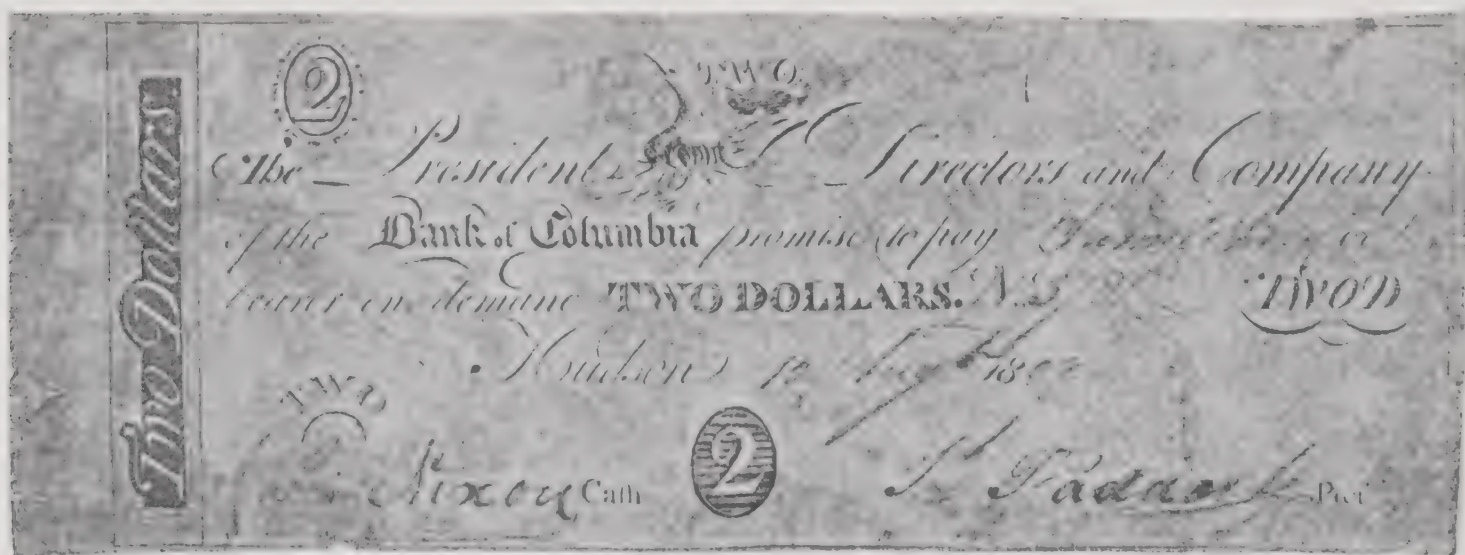 Two Dollars
2
TWO
The President Directors and Company
of the Bank of Columbia promise to pay or
bearer on demand TWO DOLLARS. No TWO D
Hudson 18
TWO
Nixon Cash 2 Pres